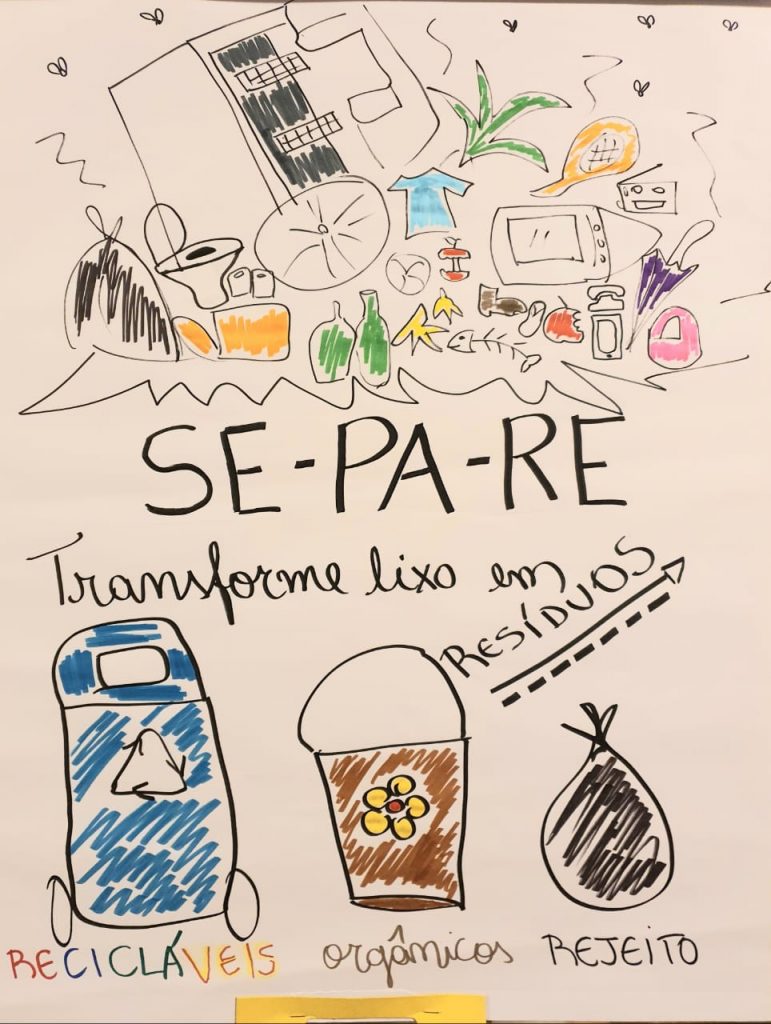 SE-PA-RE
Transforme lixo em
RESÍDUOS
RECICLÁVEIS orgânicos REJEITO